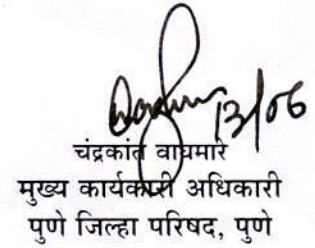 13/06
चंद्रकांत वाघमारे
मुख्य कार्यकारी अधिकारी
पुणे जिल्हा परिषद, पुणे